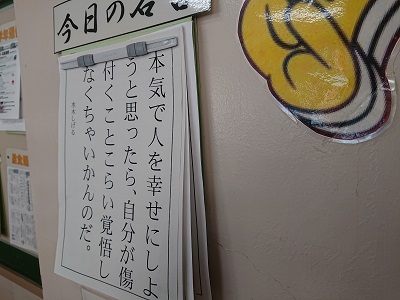 今日の名言
本気で人を幸せにしよ
うと思ったら、自分が傷
付くことこらい覚悟し
なくちゃいかんのだ。
水木しげる